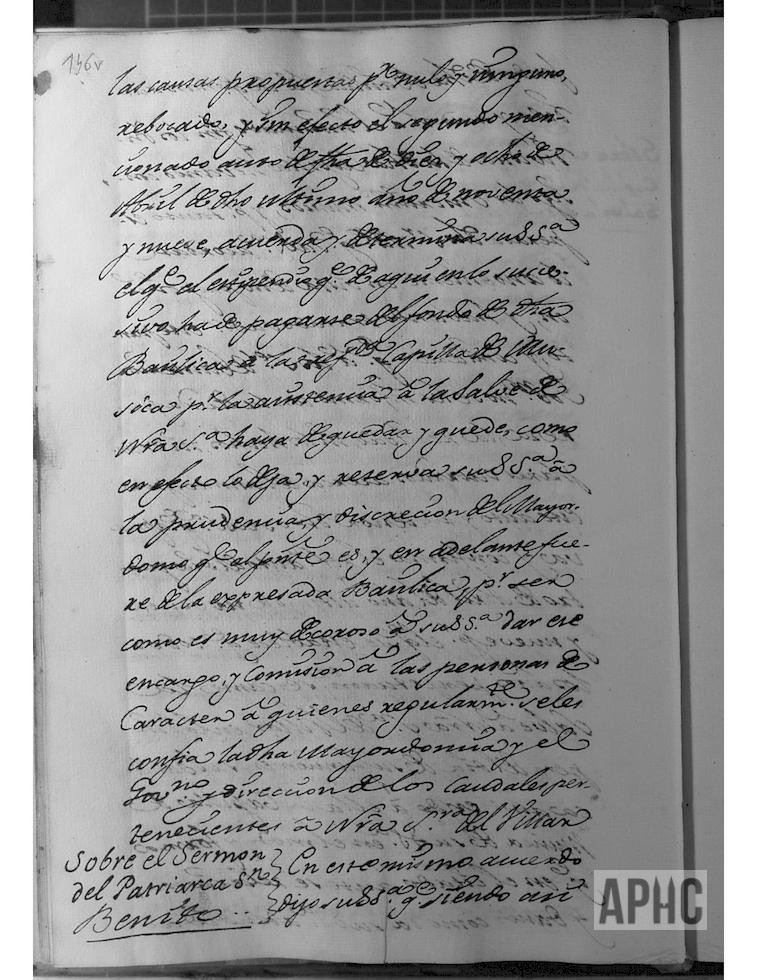 146v
las causas propuestas pr. nulo, y ninguno,
rebocado, y sin efecto el segundo men-
cionado auto de fha de diez y ocho de
Abril de dho ultimo año de noventa
y nueve, acuerda y determina su S. Sa.
el qe. el estipendio qe. de aqui en lo suce-
sivo ha de pagarse del fondo de dha
Basilica a la Capilla de Mu-
sica pr. la asistencia a la Salve de
Nra Sa. haya de quedar y quede, como
en efecto lo deja, y reserva su S. Sa. a
la prudencia, y discrecion del Mayor-
domo qe. al pnte es, y en adelante fue-
re de la expresada Basilica, pr. ser
como es muy decoroso a su S. Sa. dar este
encargo, y Comision a las personas de
Caracter a quienes regularmte. se les
confia la dha Mayordomia y el
Govno. y direccion de los Caudales per-
tenecientes a Nra Sra. del Villar
Sobre el Sermon
del Patriarca Sn.
Benito
En este mismo acuerdo
dijo su S. Sa. qe. siendo asi
APHC